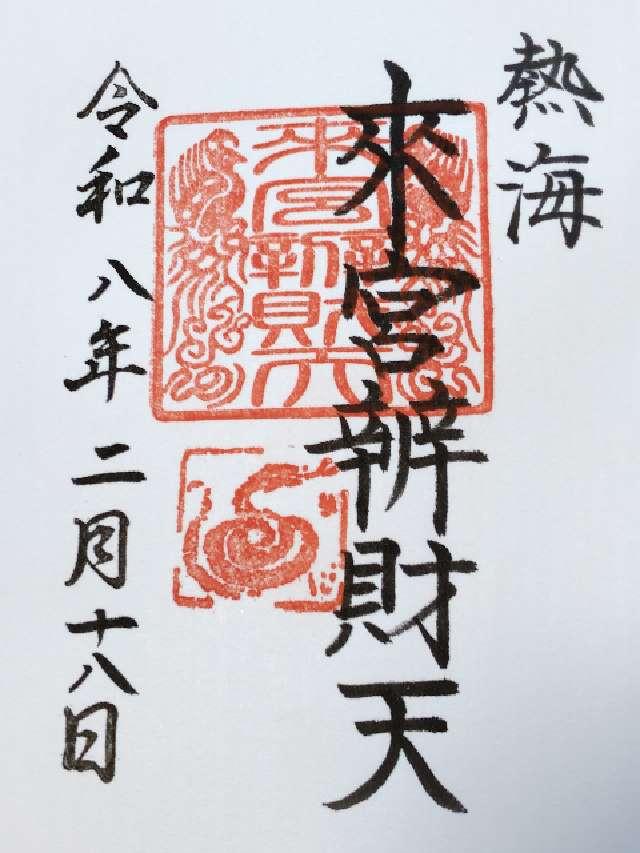 熱海
來宮辨財天
令和八年二月十八日
來宮辨財天